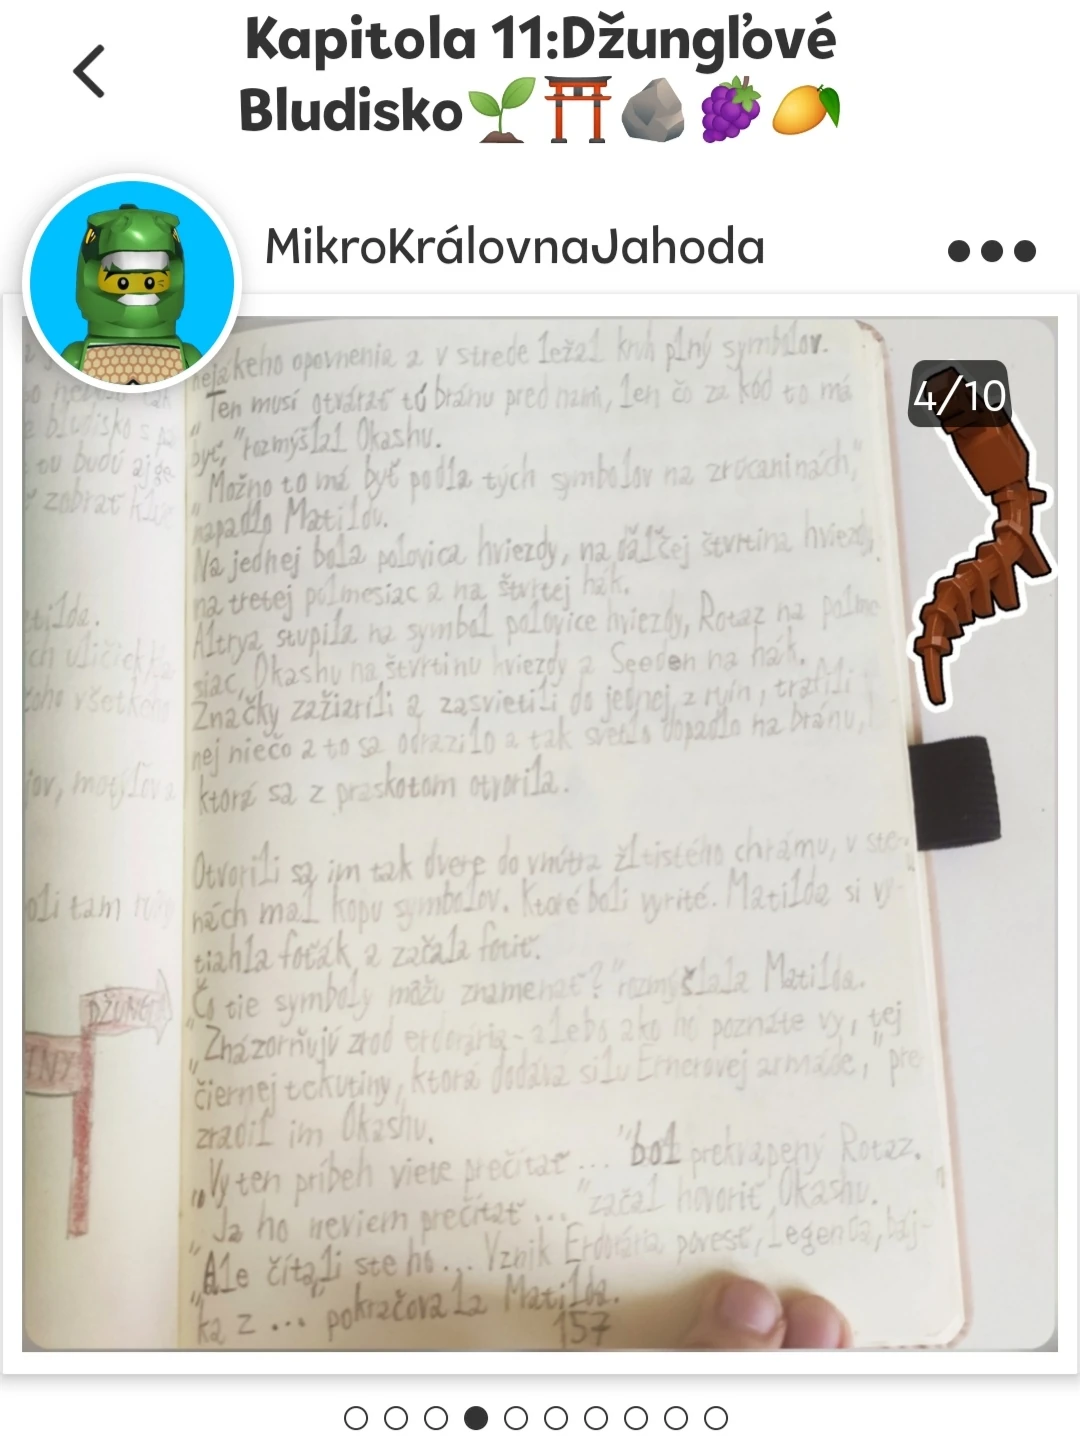 Kapitola 11:Džungľové
Bludisko
MikroKrálovnaJahoda
4/10
nejakeho opovnenia a v strede ležal kruh plný symbolov.
"Ten musí otvárať tú bránu pred nami, len čo za kód to má
byť," rozmýšlal Okashu.
"Možno to má byť podla tých symbolov na zrucaninách,"
napadlo Matildu.
Na jednej bola polovica hviezdy, na ďalčej štvrtina hviezdy,
na tretej polmesiac a na štvrtej hák.
Altrya stupila na symbol polovice hviezdy, Rotaz na polme
siac, Okashu na štvrtinu hviezdy a Seeden na hák.
Značky zažiarili a zasvietili do jednej z ruín, trafili
nej niečo a to sa odrazilo a tak svetlo dopadlo na bránu,
ktorá sa z praskotom otvorila.
Otvorili sa im tak dvere do vnútra žltistého chrámu, v ste-
nách mal kopu symbolov. Ktoré boli vyrité. Matilda si vy-
tiahla foťák a začala fotiť.
Čo tie symboly môžu znamenať?" rozmýšlala Matilda.
"Znázorňujú zrod erdorária - alebo ako ho poznáte vy, tej
čiernej tekutiny, ktorá dodáva silu Ernerovej armáde," pre
zradil im Okashu.
"Vy ten príbeh viete prečítať... "bol prekvapený Rotaz.
"Ja ho neviem prečítať... "začal hovoriť Okashu.
"Ale čítali ste ho... Vznik Erdorária, povesť, legenda, báj-
ka z ... pokračovala Matilda.
157
tilda.
ch uličiek
toho všetkého
oli tam
DŽUNG
INY
e bludisko s
tu budú aj
zobrať